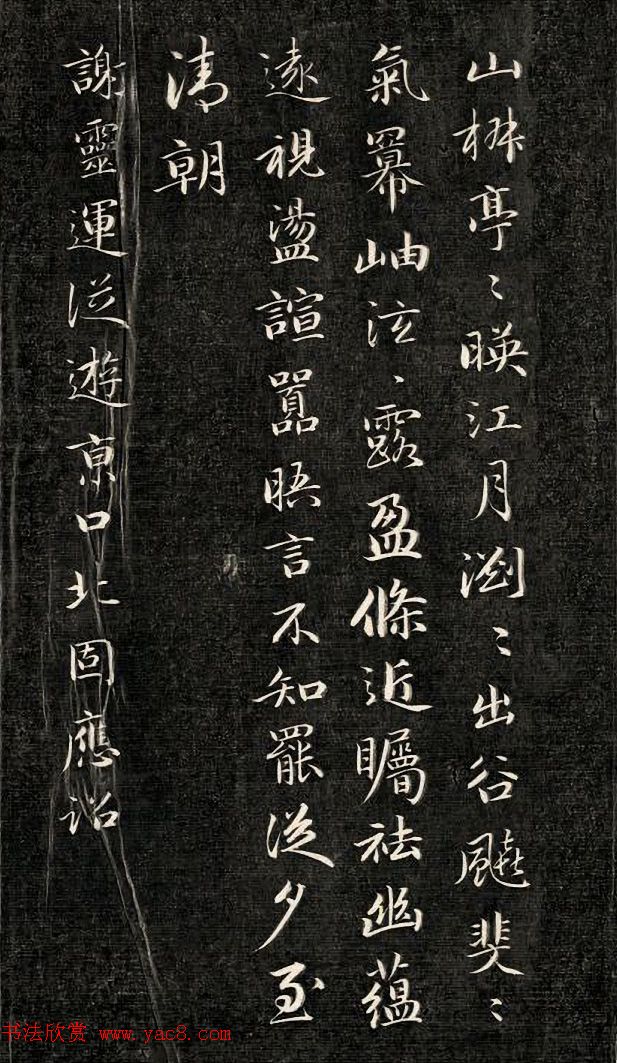 山椒亭〻暎江月瀏〻出谷飈斐〻
氣羃岫泫〻露盈條近矚祛幽蘊
遠視盪諠囂晤言不知罷從夕至
清朝
謝靈運從遊京口北固應詔
书法欣赏 www.yac8.com